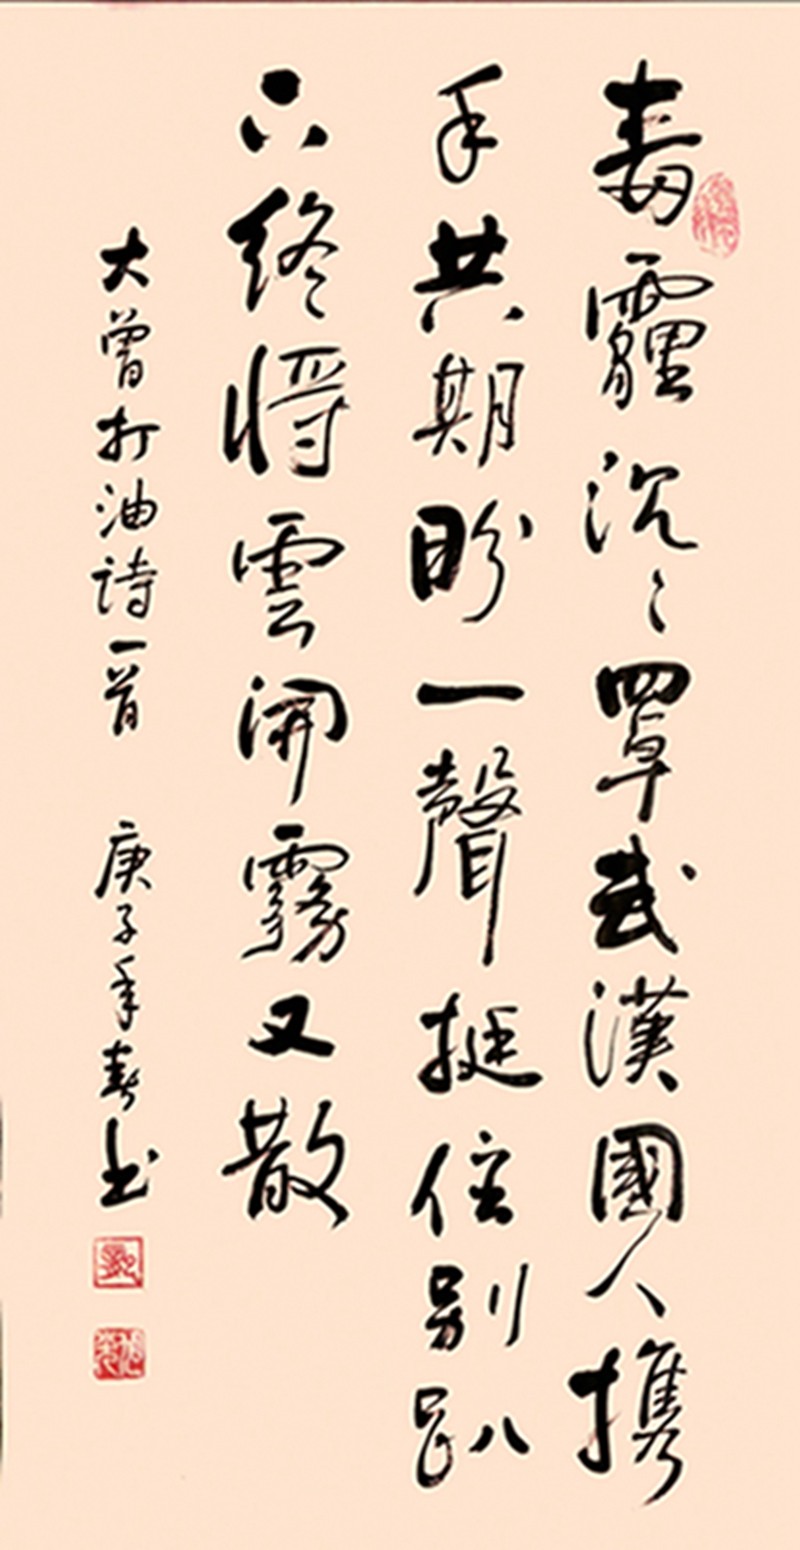 毒霾沉〻罩武漢國人攜
手共期盼一聲挺住別趴
下終將雲開霧又散
大曾打油诗一首 庚子年春书